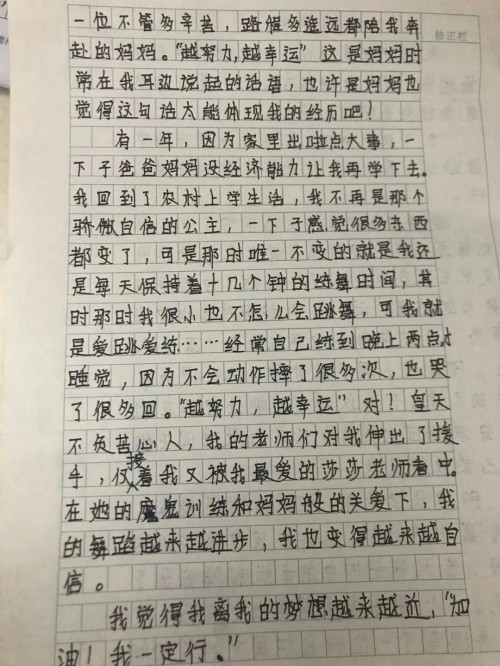 修正栏
一位不管多辛苦，路程多遥远都陪我奔
赴的妈妈。“越努力，越幸运”这是妈妈时
常在我耳边说起的话语，也许是妈妈也
觉得这句话太能体现我的经历吧！
有一年，因为家里出啦点大事，一
下子爸爸妈妈没经济能力让我再学下去。
我回到了农村上学生活，我不再是那个
骄傲自信的公主，一下子感觉很多东西
都变了，可是那时唯一不变的就是我还
是每天保持着十几个钟的练舞时间，其
时那时我很小也不怎么会跳舞，可我就
是爱跳爱练……经常自己练到晚上两点才
睡觉，因为不会动作摔了很多次，也哭
了很多回。“越努力，越幸运”对！皇天
不负苦心人，我的老师们对我伸出了援
手，接着我又被我最爱的莎莎老师看中。
在她的魔鬼训练和妈妈般的关爱下，我
的舞蹈越来越进步，我也变得越来越自
信。
我觉得我离我的梦想越来越近，“加
油！我一定行。”